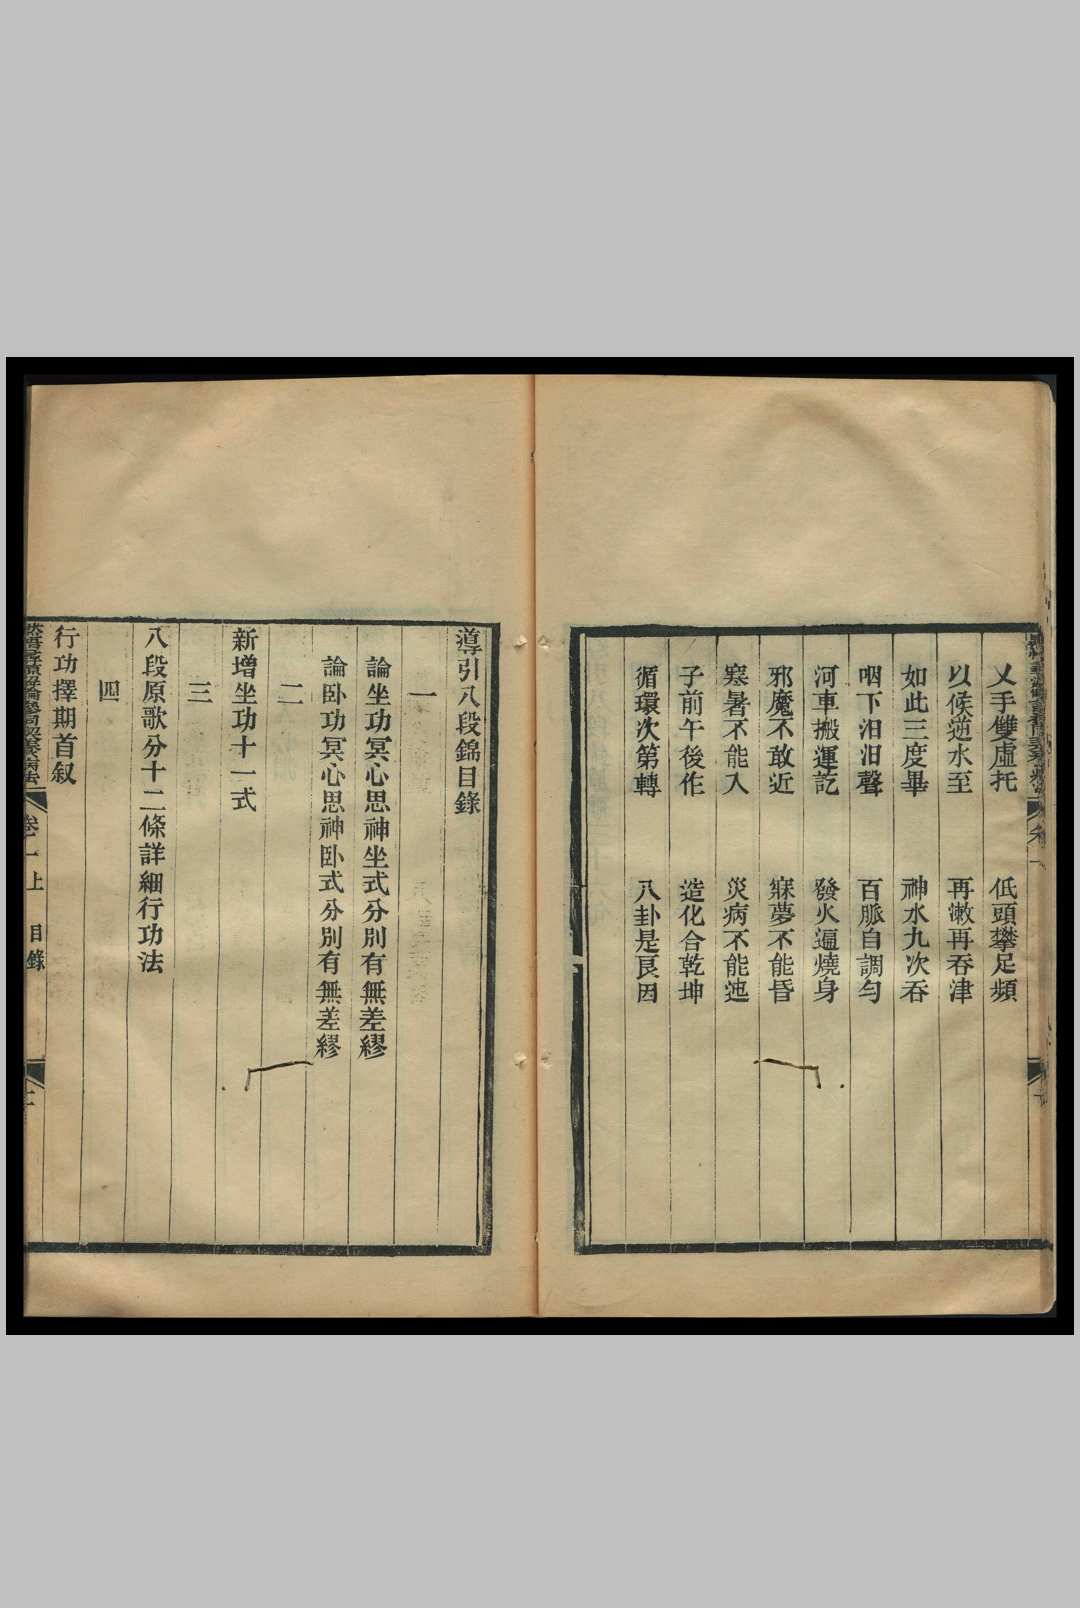 乂手雙虛托　低頭攀足頻
以候逆水至　再漱再吞津
如此三度畢　神水九次吞
咽下汩汩聲　百脈自調勻
河車搬運訖　發火遍燒身
邪魔不敢近　寐夢不能昏
寒暑不能入　災病不能迍
子前午後作　造化合乾坤
循環次第轉　八卦是良因
導引八段錦目錄
一
論坐功冥心思神坐式分別有無差繆
論卧功冥心思神卧式分別有無差繆
二
新增坐功十一式
三
八段原歌分十二條詳細行功法
四
行功擇期首叙
卷二上　目錄